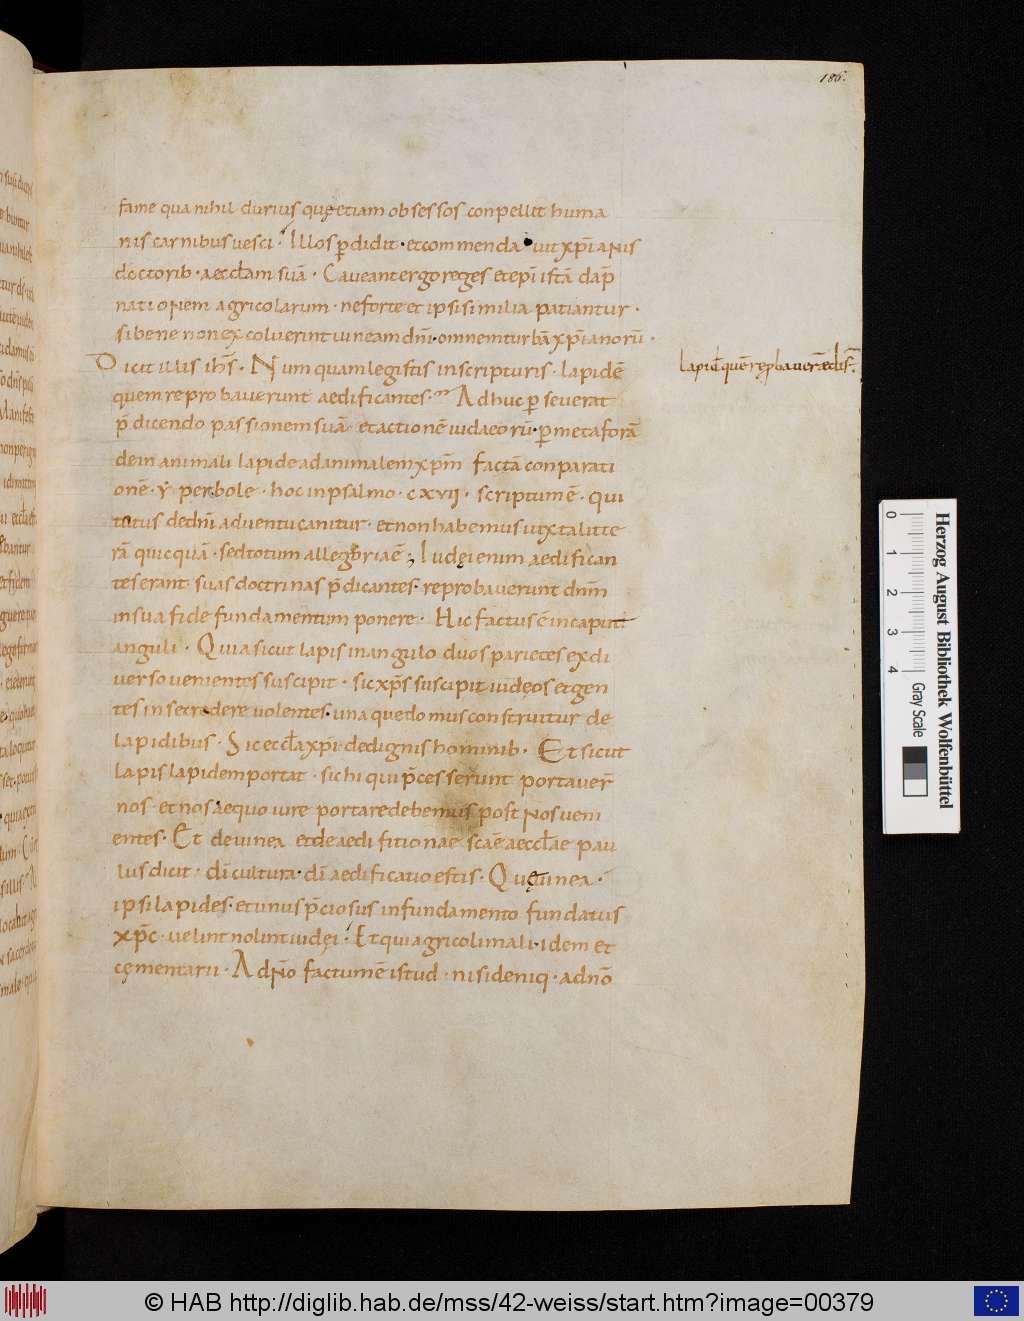 186.
fame qua nihil durius quę etiam obsessos conpellit huma
nis carnibus vesci · Illos p̱didit · et commendauit xp̄ianis
doctorib · aeccl̄am suā · Caveant ergo reges et ep̄i istā dāp
nationem agricolarum · ne forte et ipsi similia patiantur ·
si bene non excoluerint vineam dn̄i · omnem turbā xp̄ianorū ·
Dicit illis ih̄s · Numquam legistis in scripturis · lapidē
quem reprobaverunt aedificantes · Adhuc p̱severat
p̄dicendo passionem suā · et actionē iudaeorū · p̱ metaforā
de inanimali lapide ad animalem xp̄m factā conparati
onē · yperbole · hoc in psalmo · cxvii · scriptum ē · qui
totus de dn̄i adventu canitur · et non habemus iuxta litte
rā quicquā · sed totum allegoriae ē ; Iudęi enim aedifican
tes erant · suas doctrinas p̄dicantes · reprobaverunt dn̄m
in sua fide fundamentum ponere · Hic factus ē in caput
anguli · Quia sicut lapis in angulo duos parietes ex di
verso venientes suscipit · sic xp̄s suscipit iudęos et gen
tes in se credere volentes · una quę domus construitur de
lapidibus · Sic eccl̄a xp̄i de dignis hominib · Et sicut
lapis lapidem portat · sic hi qui p̄cesserunt portaver̄
nos · et nos aequo iure portare debemus post nos veni
entes · Et de vinea et de aedifitionae scāe aeccl̄ae pau
lus dicit · dī cultura · dī aedificatio estis · Quę vinea ·
ipsi lapides · et unus p̄ciosus in fundamento fundatus
xp̄c · velint nolint iudęi · Et qui agricoli mali · idem et
cęmentarii · Ad nr̄o factum ē istud · nisi deniq · ad nō
lapidē quē rep̱baver̄ ædis̄
0
1
2
3
4
Herzog August Bibliothek Wolfenbüttel
Gray Scale
© HAB http://diglib.hab.de/mss/42-weiss/start.htm?image=00379